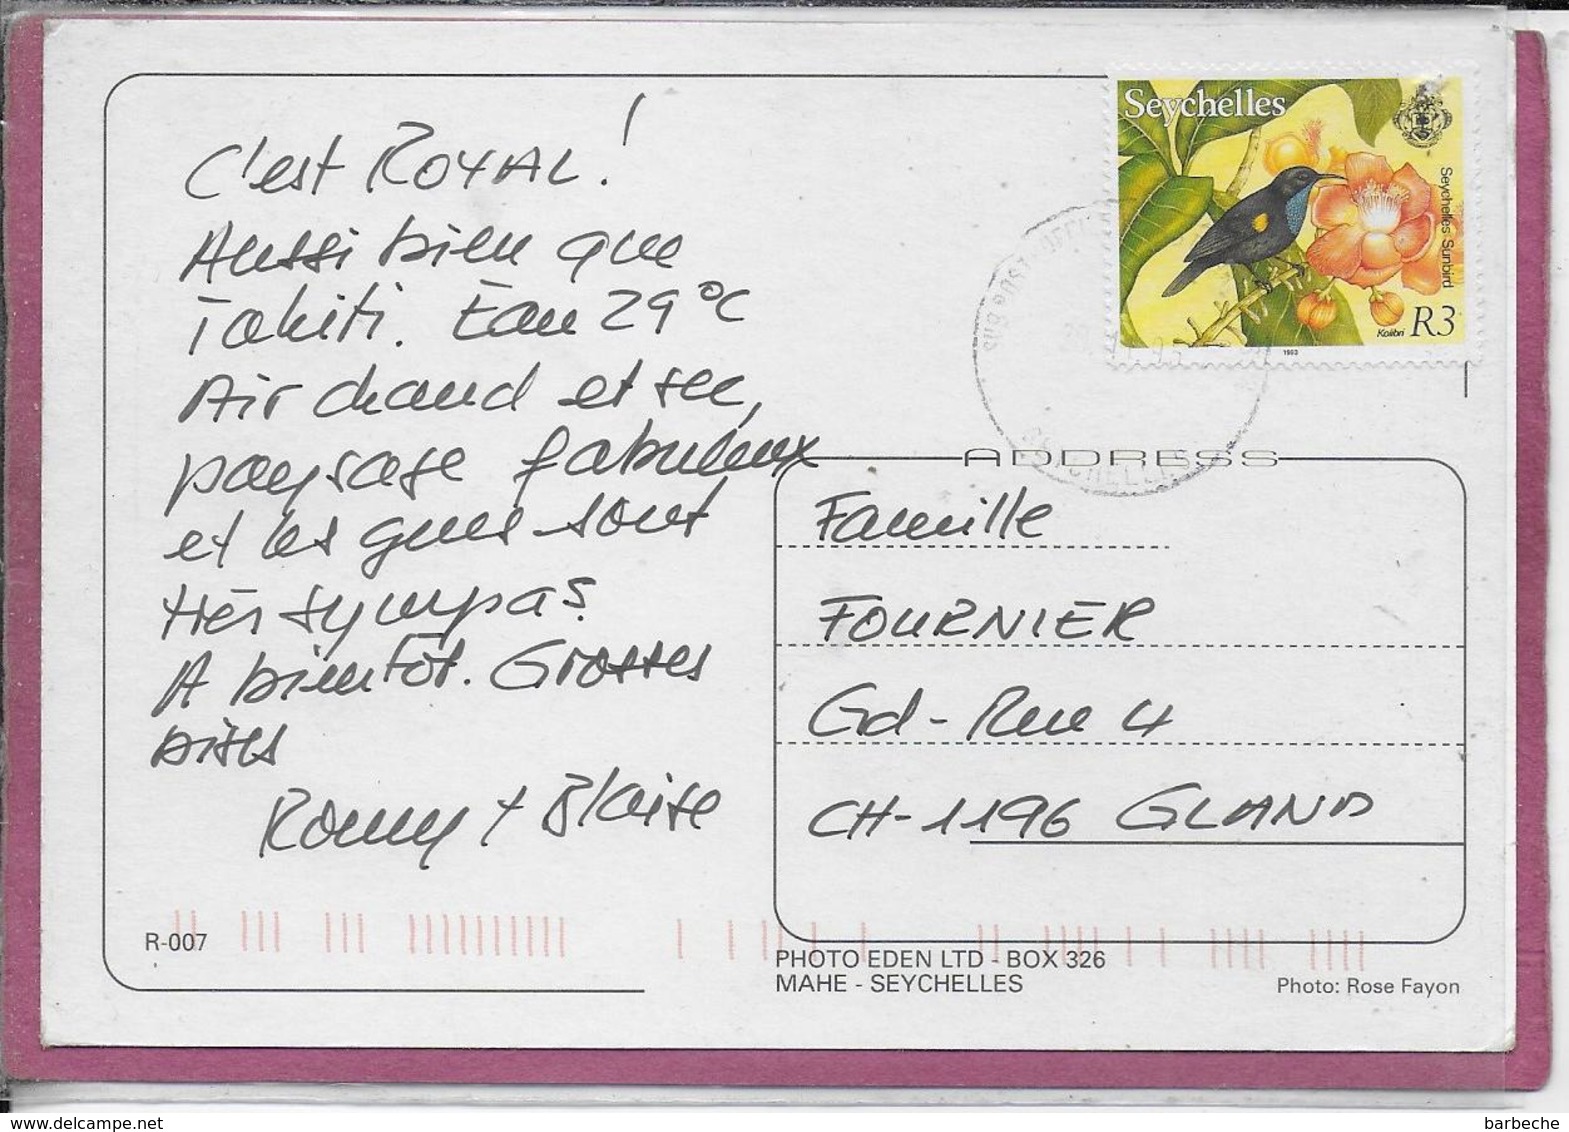 C'est ROYAL!
Aussi bien que
Tahiti. Eau 29°C
Air chaud et sec,
paysage fabuleux
et les gens sont
très sympas
A bientôt. Grosses
bises
Romy + Blaise
R-007
Seychelles
Seychelles Sunbird
Kolibri R3
1993
SUB POST OFFI
SEYCHELLES
ADDRESS
Famille
FOURNIER
Gd-Rue 4
CH-1196 GLAND
PHOTO EDEN LTD - BOX 326
MAHE - SEYCHELLES
Photo: Rose Fayon
barbeche